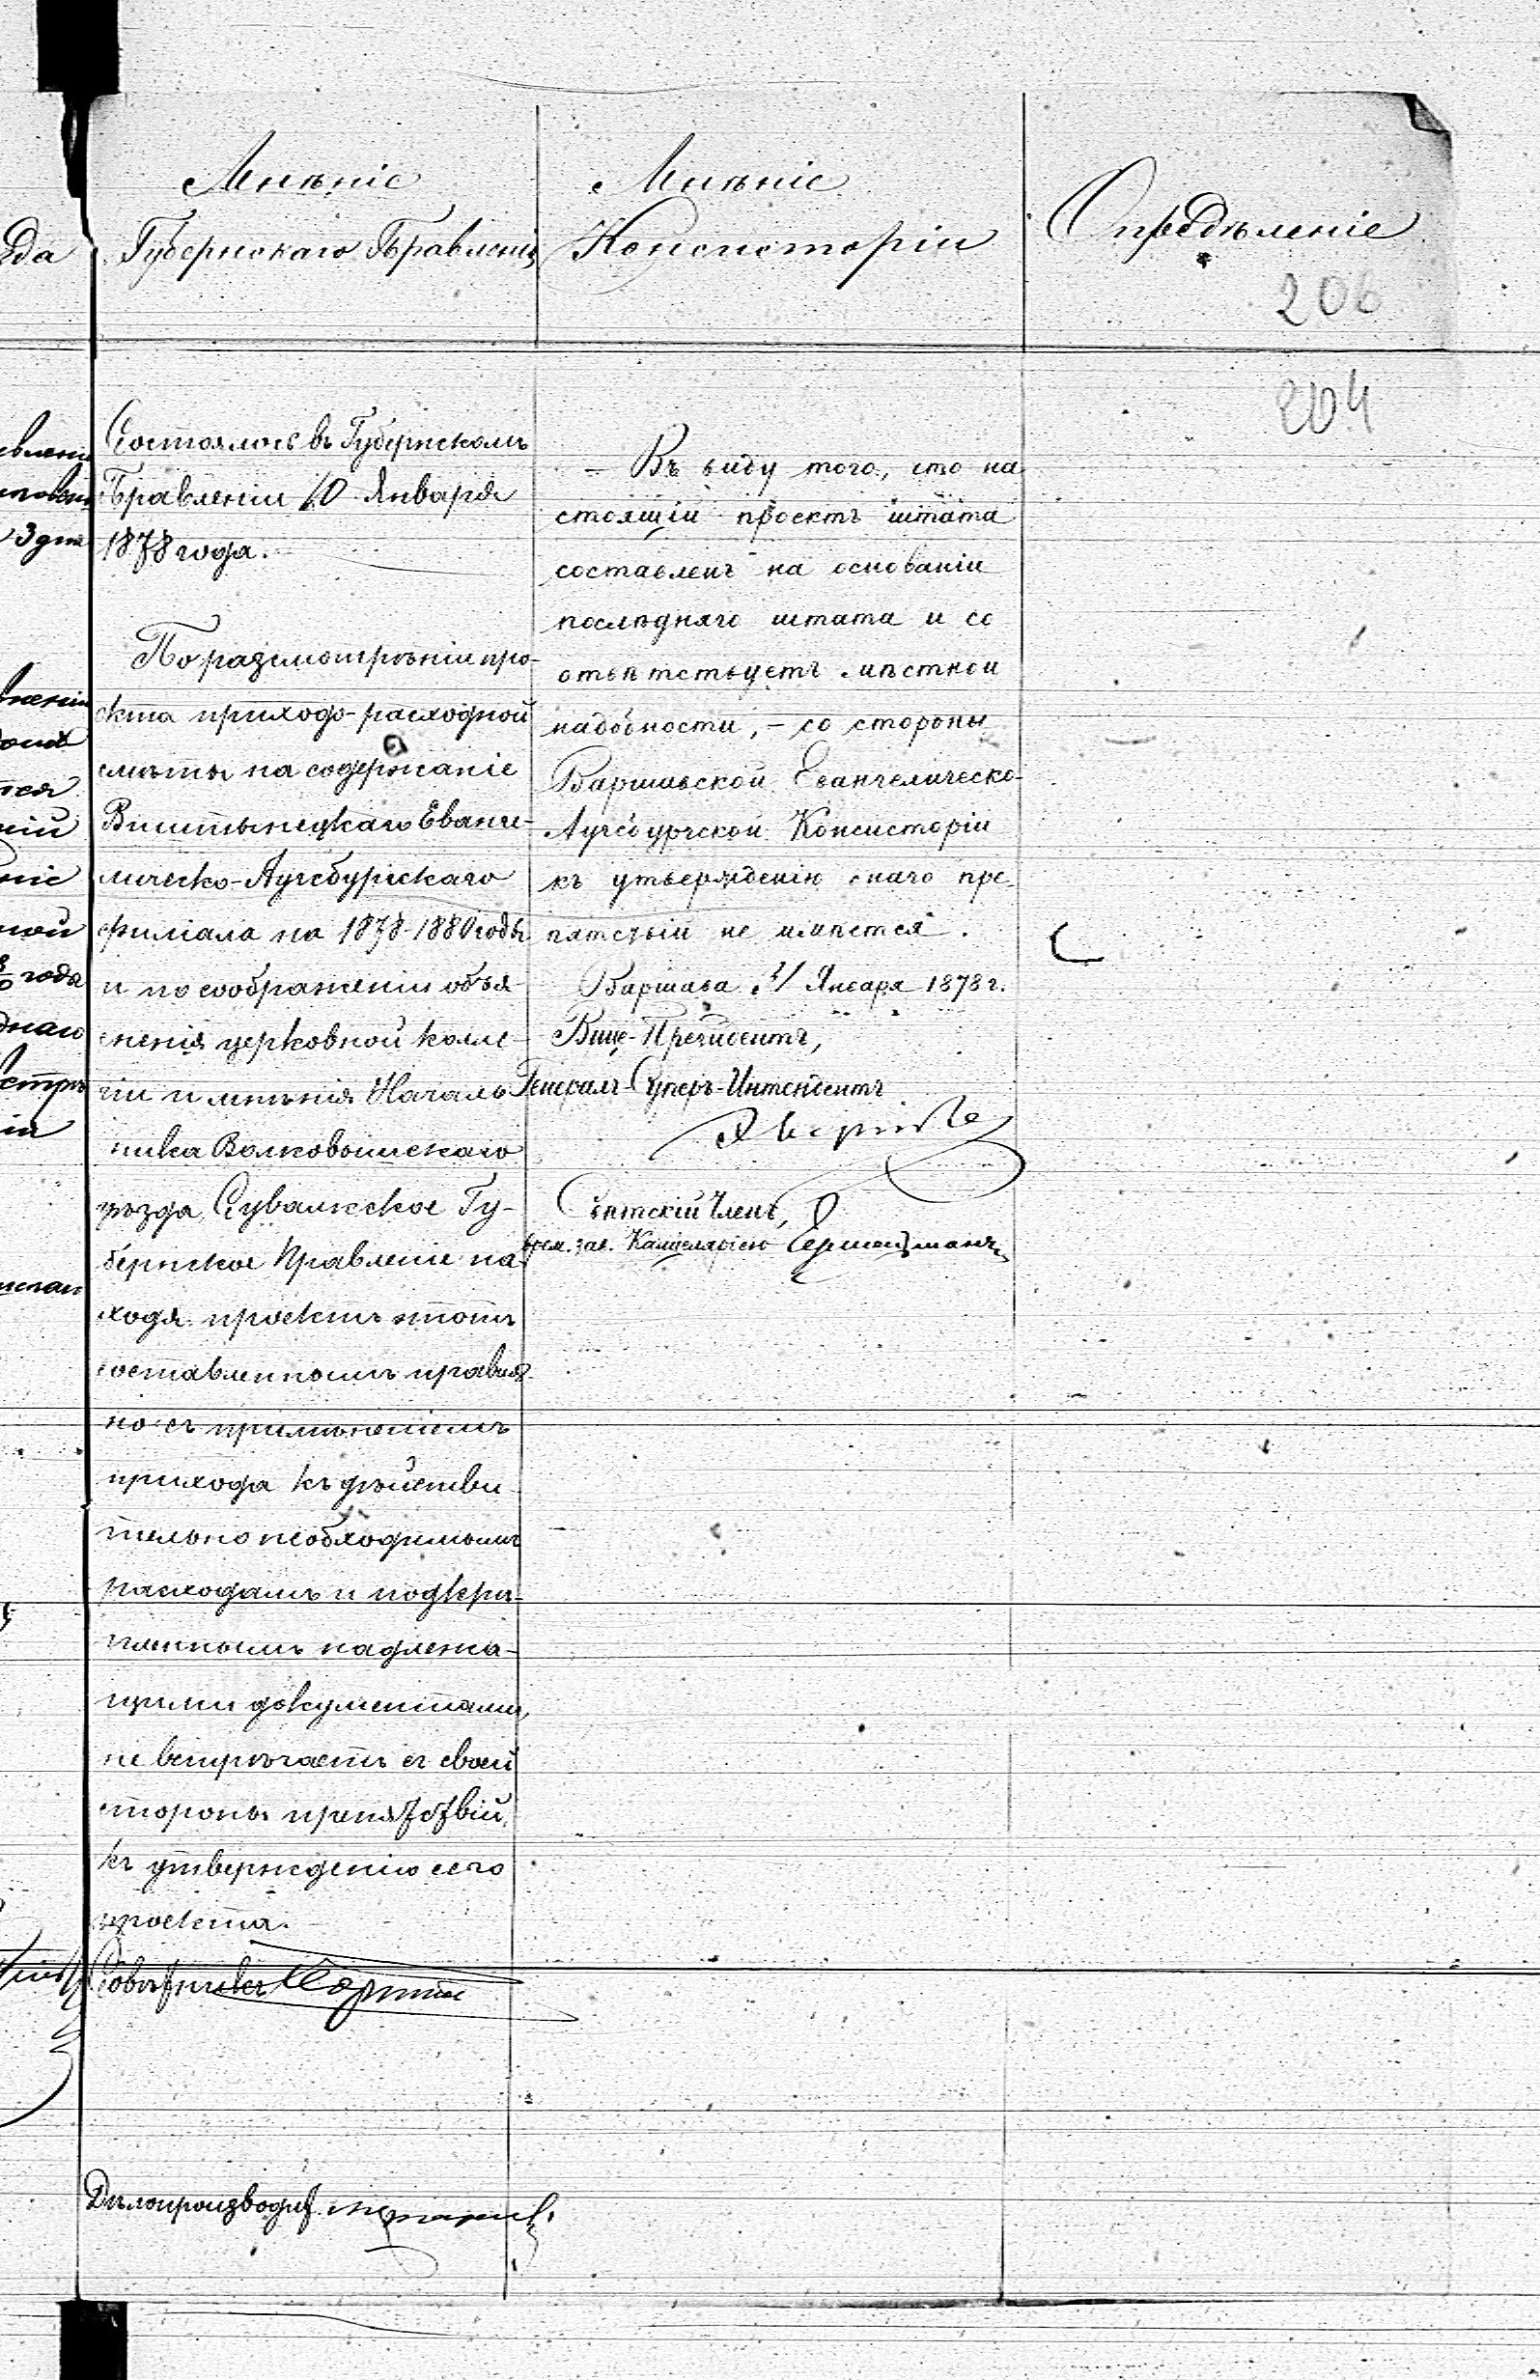 Мнѣніе
Губернскаго Правленія
Мнѣніе
Консисторіи
Опредѣленіе
206
204
Состоялось въ Губернскомъ
Правленіи 10 Января
1878 года.
По разсмотрѣніи про-
екта приходо-расходной
смѣты на содержаніе
Виштынецкаго Еванге-
лическо-Аугсбургскаго
филіала на 1878-1880 годы
и по соображеніи объя-
сненія церковной колле-
гіи и мнѣнія Началь
ника Волковышскаго
уѣзда, Сувалкское Гу-
бернское Правленіе на
ходя проектъ этотъ
составленнымъ правиль
но съ примѣненіемъ
прихода къ дѣйстви
тельно необходимымъ
расходамъ и подкрѣ-
пленнымъ надлежа-
щими документами,
не встрѣчаетъ съ своей
стороны препятствій
къ утвержденію сего
проекта.
Совѣтникъ
Дѣлопроизводит
– Въ виду того, что на
стоящій проектъ штата
составленъ на основаніи
послѣдняго штата и со
отвѣтствуетъ мѣстной
надобности, – со стороны
Варшавской Евангелическо-
Аугсбургской Консисторіи
къ утвержденію онаго пре
пятствій не имѣется.
Варшава 31 Января 1878 г.
Вице-Президентъ,
Генералъ-Суперъ-Интендентъ
Свѣтскій Членъ,
врем. зав. Канцеляріею